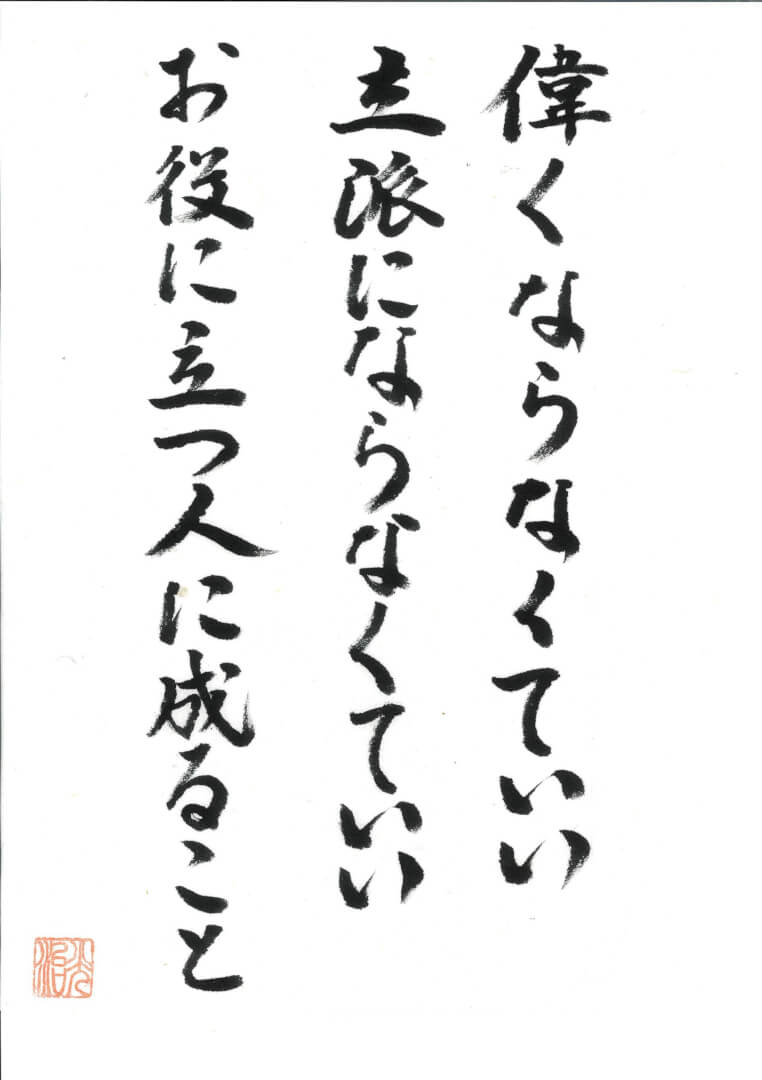 偉くならなくていい
立派にならなくていい
お役に立つ人に成ること